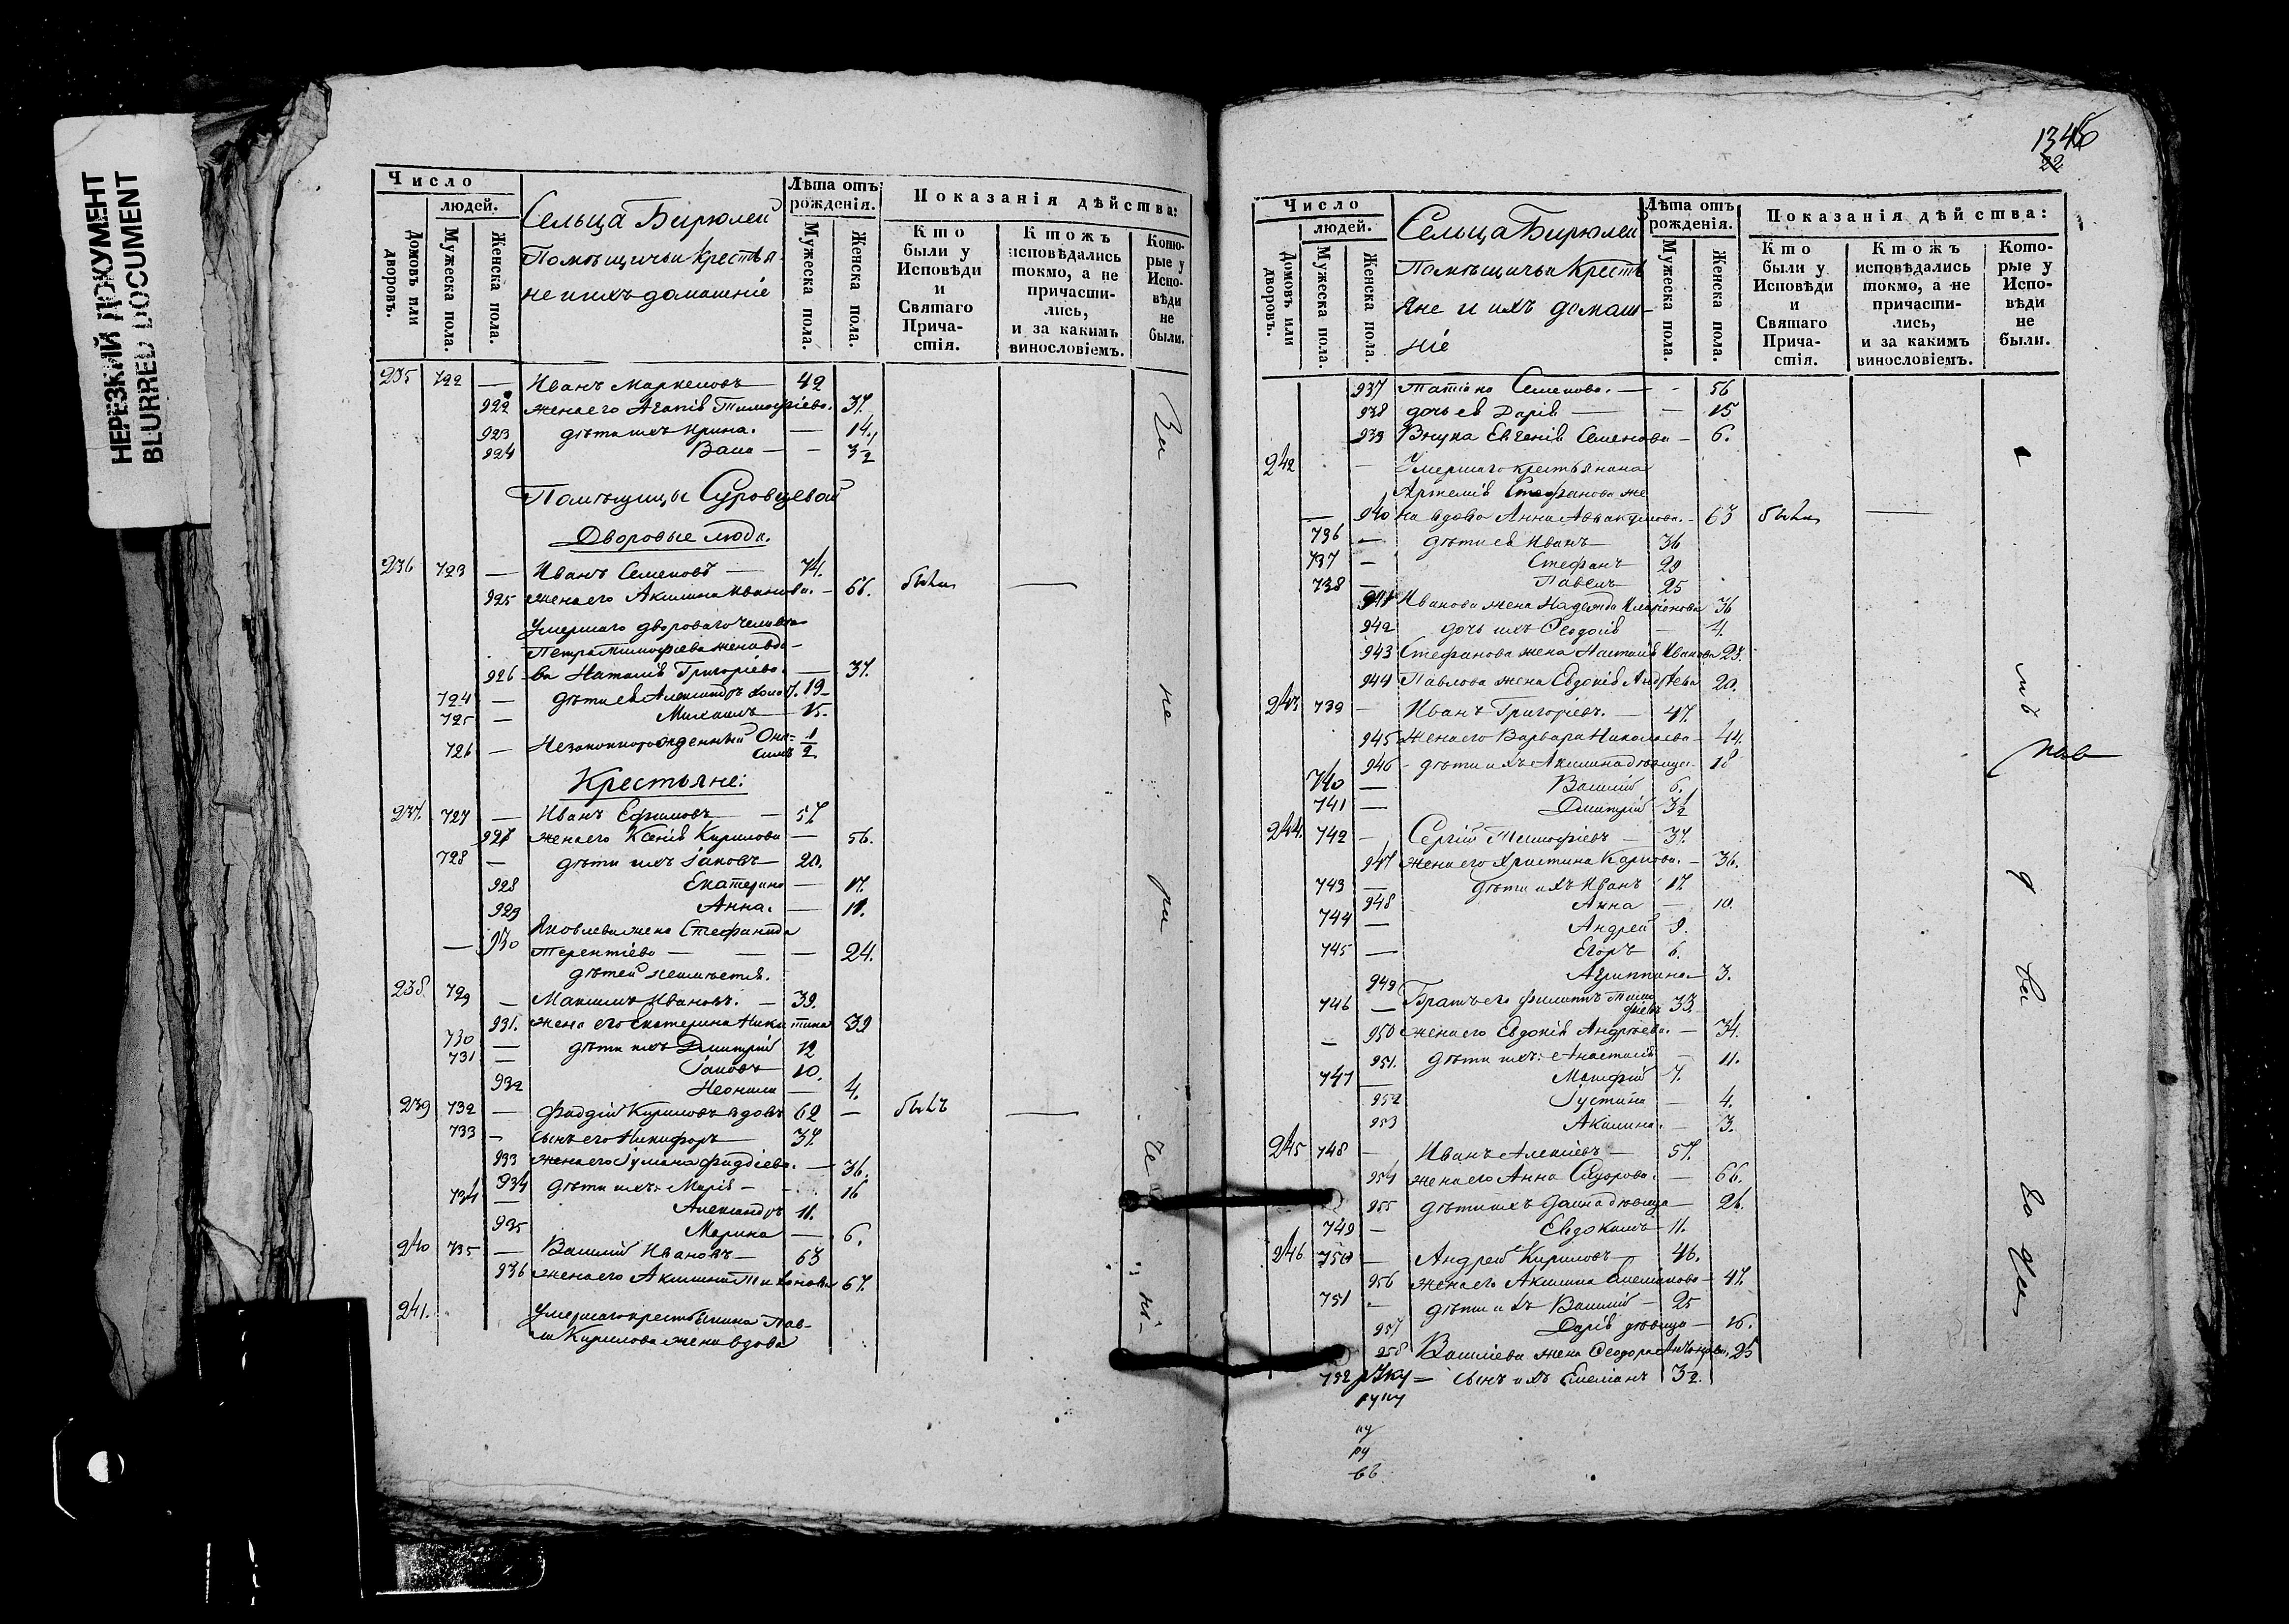 НЕРЕЗКИЙ ДОКУМЕНТ
BLURRED DOCUMENT
Число
людей.
Домовъ или дворовъ.
Мужеска пола.
Женска пола.
Сельца Бирюлей
Помѣщичьи крестья-
не и ихъ домашніе
Лѣта отъ рожденія.
Мужеска пола.
Женска пола.
Показанія дѣйства:
Кто были у Исповѣди и Святаго Прича-стія.
Ктожъ исповѣдались токмо, а не причасти-лись, и за какимъ винословіемъ.
Кото-рые у Испо-вѣди не были.
235 722 — Иванъ Маркеловъ — 42
922 жена его Агапія Тимофѣева. 37.
923 дѣти ихъ Ирина. — 14.
924 Васса — — 3½
Помѣщицы Суровцевой
Дворовые люди.
236 723 — Иванъ Семеновъ — 74.
925 жена его Акилина Иванова. — 66. были —
Умершаго двороваго человѣка
Петра Тимофѣева жена вдо-
926 ва Наталія Григоріева. — 37.
724 — дѣти ея Александръ холост. 19
725 — Михаилъ — 15.
726 — Незаконнорожденный Они-
симъ ½
Крестьяне:
237. 727 — Иванъ Ефимовъ — 57
927 жена его Ксенія Кирилова — 56.
728 — дѣти ихъ Іаковъ — 20.
928 Екатерина — 17.
929 Анна. — 11.
Яковлева жена Стефанида
— 930 Терентіева — — — 24.
дѣтей неимѣется.
238. 729 — Максимъ Ивановъ. — 39.
931. жена его Екатерина Никитина 39
730 — дѣти ихъ Дмитрій 12
731 — Іаковъ 10.
932 Неонила — 4.
239 732 — Фаддій Кириловъ вдовъ 62 — былъ —
733 — сынъ его Никифоръ — 37.
933 жена его Іуліана Фаддіева. — 36.
934 дѣти ихъ: Марія — — 16
734 — Александръ 11.
935 Марина — 6.
240 735 — Василій Ивановъ — 63
936 жена его Акилина Тихонова 67.
241. Умершаго крестьянина Пав-
ла Кирилова жена вдова
134б
22
Число
людей.
Домовъ или дворовъ.
Мужеска пола.
Женска пола.
Сельца Бирюлей
Помѣщичьи Кресть
яне и ихъ домаш-
ніе
Лѣта отъ рожденія.
Мужеска пола.
Женска пола.
Показанія дѣйства:
Кто были у Исповѣди и Святаго Прича-стія.
Ктожъ исповѣдались токмо, а не причасти-лись, и за какимъ винословіемъ.
Кото-рые у Испо-вѣди не были.
937 Татіана Семенова. — - 56
938 дочь ея Дарія — — 15
939 Внука Евгенія Семенова — 6.
242 — Умершаго крестьянина
Артемія Стефанова же
— 940 на вдова Анна Аввакумова. - 63 были —
736 — дѣти ея Иванъ — 36
737 — Стефанъ 29
738 — Павелъ 25
941 Иванова жена Надежда Иларіонова 36
942 дочь ихъ Ѳеодосія — 4.
943 Стефанова жена Настасія Иванова 23.
944 Павлова жена Евдокія Андреева 20.
243 739 — Иванъ Григоріевъ. — 47.
945 жена его Варвара Николаева — 44.
946 - дѣти ихъ Акилина дѣвица - 18
740 — Василій 6.
741 — Дмитрій 3½
244. 742 — Сергій Тимофѣевъ — 37.
947 жена его Христина Карпова. — 36.
743 — дѣти ихъ Иванъ 17.
948 Анна — 10.
744 — Андрей 9.
745 — Егоръ 6.
949 Агриппина — 3.
746 — Братъ его Филиппъ Тимо
фѣевъ 33.
— 950 жена его Евдокія Андрѣева. — 34.
951. дѣти ихъ: Анастасія — 11.
747 — 7.
952 Іустина — 4.
953 Акилина. — 3.
245 748 — Иванъ Алексіевъ — 57.
954 жена его Анна Сидорова. — 66.
955 дѣти ихъ дѣвица — 26.
749 — Евдокимъ 11.
246 750 — Андрей Кириловъ — 46.
956 жена его Акилина Емеліанова — 47.
751 — дѣти ихъ Василій — 25
957 Дарія дѣвица — 16.
958 Васильева жена Ѳеодора 25
752 руку = сынъ ихъ Емеліанъ 3½.
руку
ку
ру
въ